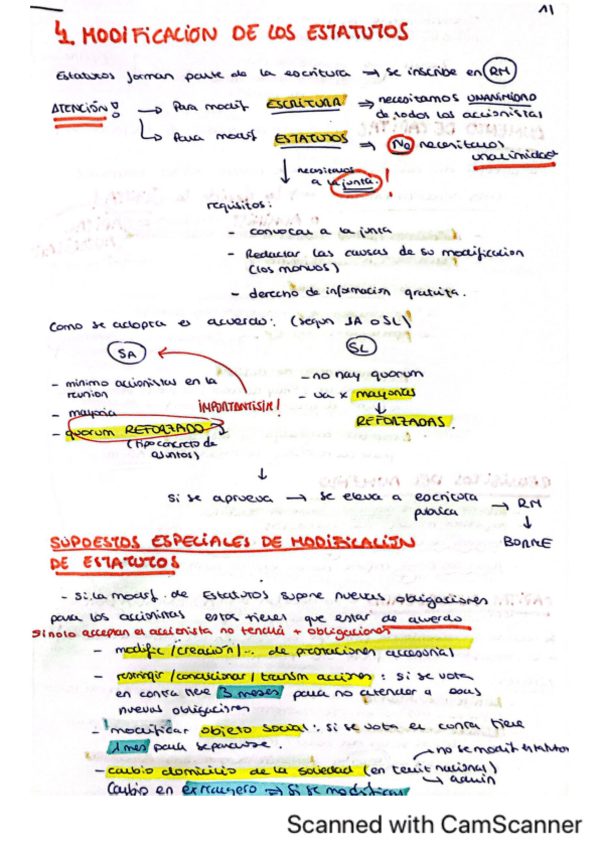 11
4. MODIFICACION DE LOS ESTATUTOS
Estatutos forman parte de la escritura → se inscribe en RM
ATENCIÓN! → Para modif ESCRITURA ⇒ necesitamos UNANIMIDAD de todos los accionistas
↳ Para modif ESTATUTOS ⇒ No necesitamos unanimidad
↓ necesitamos a la junta!
requisitos:
- convocar a la junta
- Redactar las causas de su modificacion
(los motivos)
- derecho de informacion gratuita.
Como se adopta el acuerdo: (segun SA o SL)
SA
SL
- minimo accionistas en la reunion
- mayoria
- quorum REFORZADO
(tipo concreto de asuntos)
IMPORTANTISIM!
- no hay quorum
- va x mayorias
↓
REFORZADAS.
↓
Si se aprueva → se eleva a escritura publica → RM
↓
BORME
SUPOESTOS ESPECIALES DE MODIFICACION
DE ESTATUTOS
- Si la modif. de Estatutos supone nuevas obligaciones
para los accionistas estos tienen que estar de acuerdo
Si no lo aceptan el accionista no tendrá + obligaciones
- modific/creacion/... de prestaciones accesorias
- restringir/condicionar/transm acciones: si se vota
en contra tiene 3 meses para no atender a esas
nuevas obligaciones
- modificar objeto social: si se vota en contra tiene
1 mes para separarse.
→ no se modif estatutos
- cambio domicilio de la sociedad (en territ nacional)
→ admin
Cambio en extranjero ⇒ si se modifican
Scanned with CamScanner